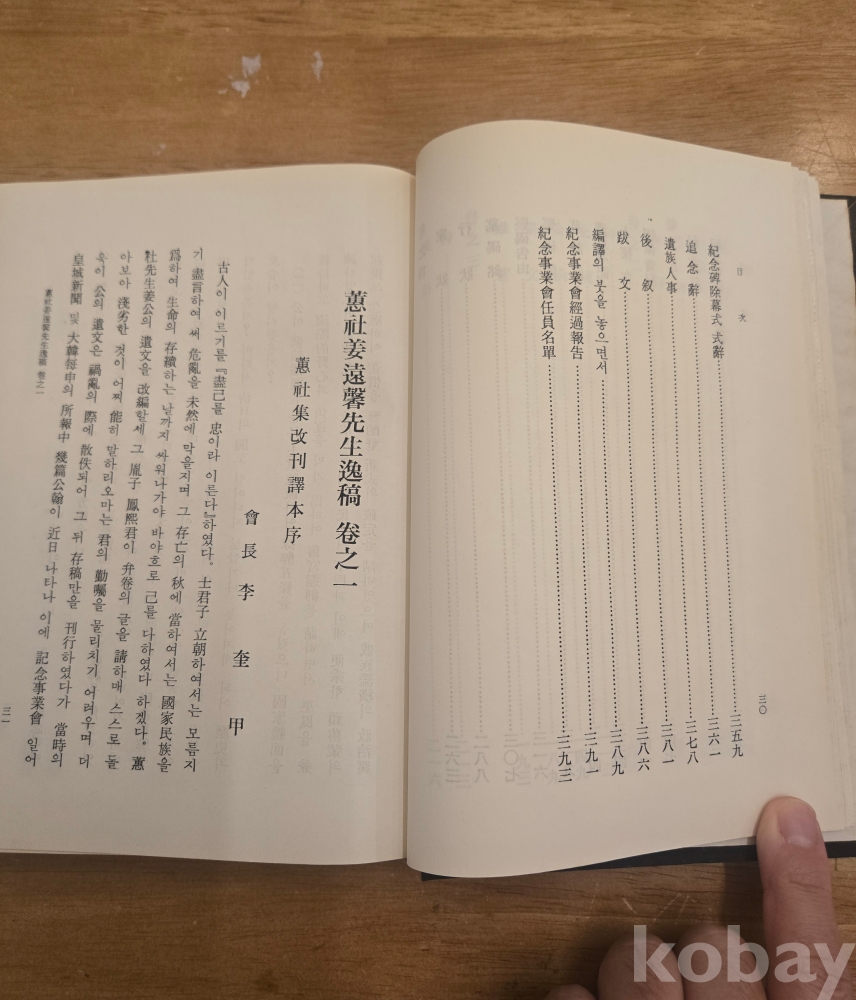 目次
紀念碑除幕式 式辭 三五九
追念辭 三六一
遺族人事 三七八
後叙 三八一
跋文 三八六
編譯의 붓을 놓으면서 三八九
紀念事業會經過報告 三九一
紀念事業會任員名單 三九三
三〇
蕙社姜遠馨先生逸稿 卷之一
蕙社集改刊譯本序
會長 李奎甲
古人이 이르기를 『盡己를 忠이라 이른다』하였다。士君子 立朝하여서는 모름지
기 盡言하여 써 危亂을 未然에 막을지며 그 存亡의 秋에 當하여서는 國家民族을
爲하여 生命의 存續하는 날까지 싸워나가야 바야흐로 己를 다하였다 하겠다。蕙
社先生姜公의 遺文을 改編할세 그 胤子 鳳熙君이 弁卷의 글을 請하매 스스로 돌
아보아 淺劣한 것이 어찌 能히 말하리오마는 君의 勤囑을 물리치기 어려우며 더
욱이 公의 遺文은 禍亂의 際에 散佚되어 그 뒤 存稿만을 刊行하였다가 當時의
皇城新聞 및 大韓每申의 所報中 幾篇公翰이 近日 나타나 이에 記念事業會 일어
蕙社姜遠馨先生逸稿 卷之一
三一
kobay